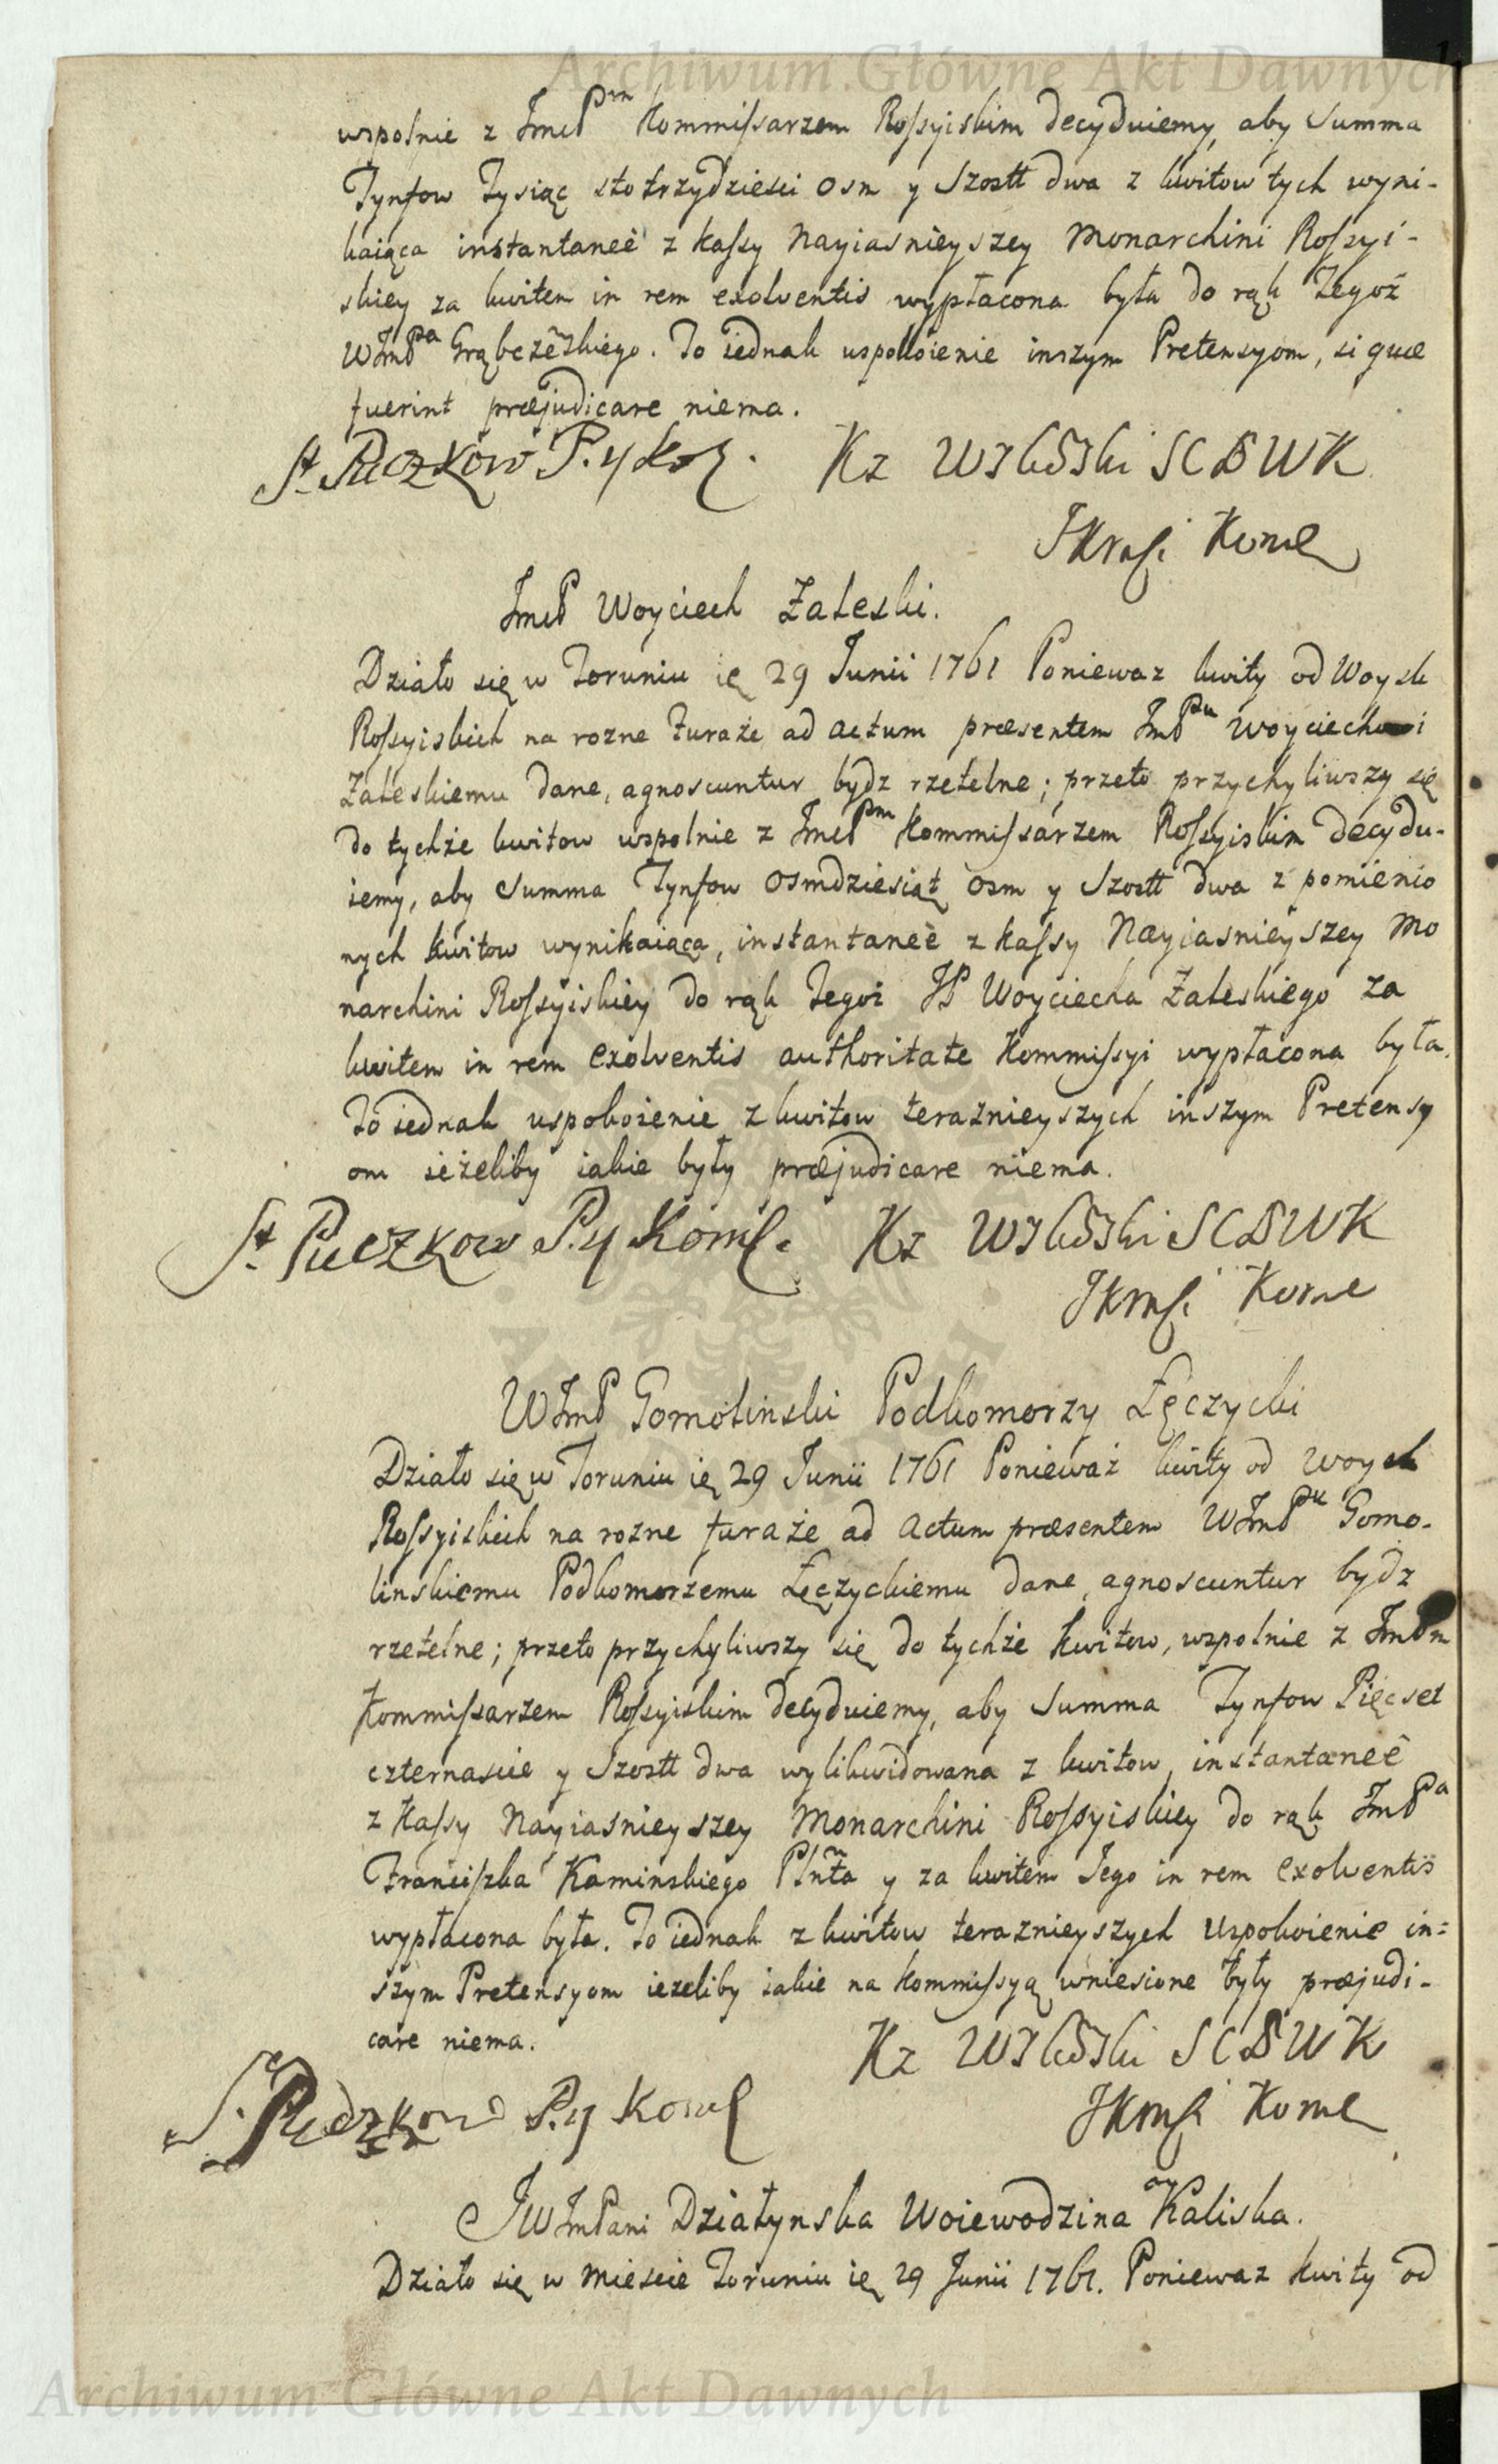 Archiwum Główne Akt Dawnych
wspolnie z JmcP<sup>m</sup> Kommissarzem Rossyiskim decyduiemy, aby Summa
Tynfow Tysiąc sto trzydziesci osm y Szostt dwa z kwitow tych wyni-
kaiąca instantaneè z kassy Nayiasnieyszey Monarchini Rossyi-
skiey za kwitem in rem exolventis wypłacona była do rąk Tegoż
WJmP<sup>a</sup> Grąbczewskiego. To iednak uspokoienie inszym Pretensyom, si quæ
fuerint præjudicare niema.
St. Puczkow P. y Kom. Kz SCBWK
Kome
JmcP Woyciech Zaleski.
Działo się w Toruniu ię 29 Junii 1761 Poniewaz kwity od Woysk
Rossyiskich na rozne furaże ad actum præsentem JmP<sup>u</sup> Woyciechowi
Zaleskiemu dane, agnoscuntur bydz rzetelne; przeto przychyliwszy się
do tychże kwitow wspolnie z JmcP<sup>m</sup> Kommissarzem Rossyiskim decydu-
iemy, aby Summa Tynfow osmdziesiąt osm y Szostt dwa z pomienio
nych kwitow wynikaiąca, instantaneè z kassy Nayiasnieyszey Mo
narchini Rossyiskiey do rąk Tegoż JP Woyciecha Zaleskiego za
kwitem in rem exolventis authoritate Kommissyi wypłacona była.
To iednak uspokoienie z kwitow teraznieyszych inszym Pretensy
om ieżeliby iakie były præjudicare niema.
St. Puczkow P. y Kom. Kz SCBWK
Kome
WJmP Gomolinski Podkomorzy Łęczycki
Działo się w Toruniu ię 29 Junii 1761 Ponieważ kwity od Woysk
Rossyiskich na rozne furaże ad Actum præsentem WJmP<sup>u</sup> Gomo-
linskiemu Podkomorzemu Łęczyckiemu dane, agnoscuntur bydz
rzetelne; przeto przychyliwszy się do tychże kwitow, wspolnie z JmPm
Kommissarzem Rossyiskim decyduiemy, aby Summa Tynfow Pięcset
czternascie y Szostt dwa wylikwidowana z kwitow, instantaneè
z Kassy Nayiasnieyszey Monarchini Rossyiskiey do rąk JmP<sup>a</sup>
Franciszka Kaminskiego Plnta y za kwitem Jego in rem exolventis
wypłacona była. To iednak z kwitow teraznieyszych uspokoienie in=
szym Pretensyom ieżeliby iakie na kommissyą wniesione były præjudi-
care niema. Kz SCBWK
St. Puczkow P. y Kom. Kome
JWJmPani Działynska Woiewodzina Kaliska.
Działo się w Miescie Toruniu ię 29 Junii 1761. Poniewaz kwity od
Archiwum Główne Akt Dawnych